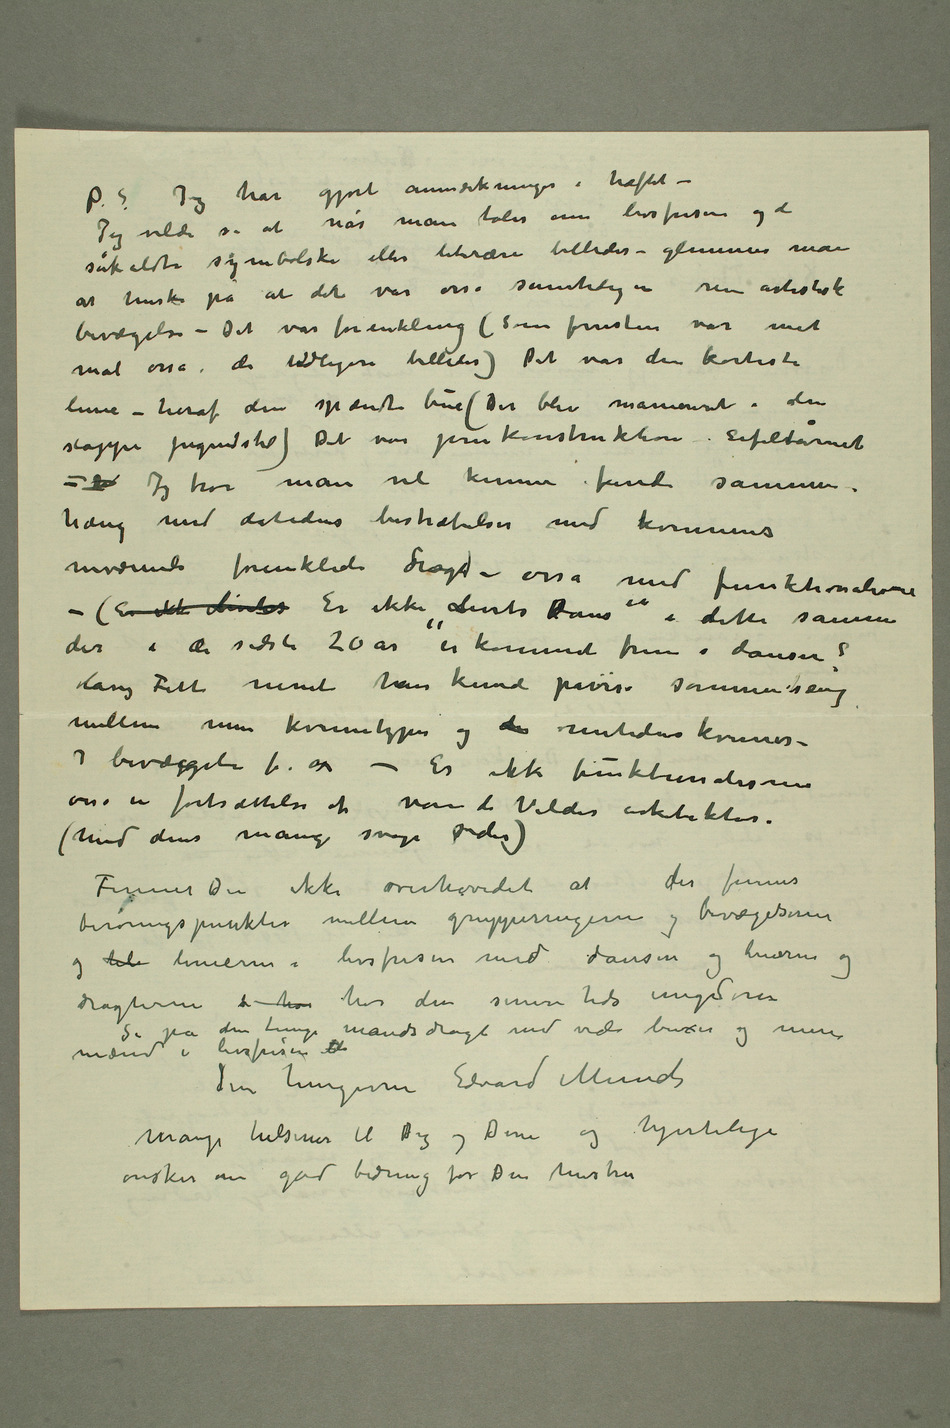 P. S. Jeg har gjort anmerkninger i hæftet –
Jeg vilde si at når man taler om livsfrisen og de
såkaldte symbolske eller literære billeder – glemmer man
at huske på at det var osså samtidig en ren artistisk
bevægelse – Det var forenkling (Som forresten var mit
mål osså i de tidligere billeder) Det var den korteste
linie – heraf den spændte bue (Der blev manieret i den
slappe jugendstil) Det var jernkonstruktion Eifeltårnet
– Jeg tror man vil kunne finde sammen-
hæng med datidens bestræbelser med kvinnens
nuværende forenklede dragt – osså med funktionalisme
– (Er ikke livets Er ikke „Livets Dans“ i dette samme
der i de sidste 20 år er kommet frem i dansen?
Harry Fett mente han kunde påvise sammenhæng
mellem min kvinnetype og den nutidens kvinner –
I bevægelse f. ex – Er ikke funktionalismen
osså en fortsættelse af van de Veldes arkitektur.
(med dens mange svage sider)
Finner Du ikke overhovedet at der finnes
berøringspunkter mellem grupperingerne og bevægelserne
og linierne i livsfrisen med dansen og buerne og
dragterne hos den senere tids ungdom
Se på den tunge mandsdragt med vide buxer og mine
mænd i livsfrisen
Din hengivne Edvard Munch
Mange hilsener til Dig og Dine og hjertelige
ønsker om god bedring for Din hustru